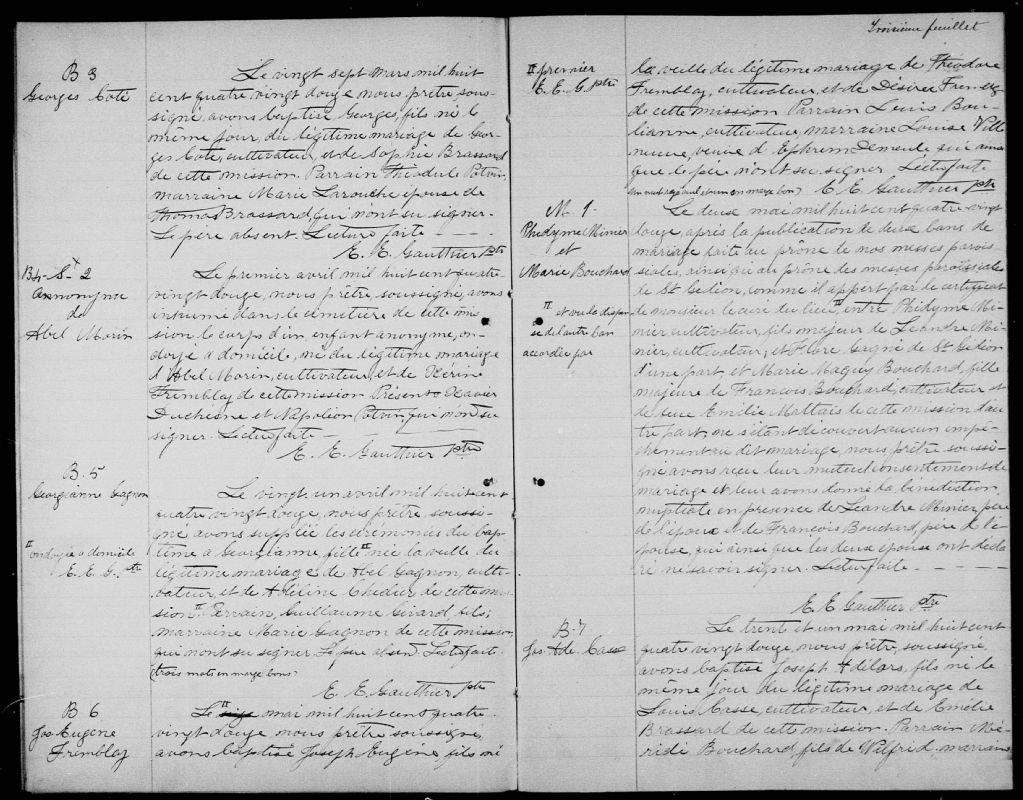 B 3
Georges Coté
Le vingt sept mars mil huit
cent quatre vingt douze nous prêtre sous-
signé avons baptisé Georges, fils né le
même jour, du légitime mariage de Geor-
ges Coté, cultivateur, et de Sophie Brassard
de cette mission. Parrain Théodule Potvin,
marraine Marie Larouche épouse de
Thomas Brassard, qui n'ont su signer.
Le père absent. Lecture faite
E. E. Gauthier Ptre
B4 - S 2
Annonyme
de
Abel Morin
Le premier avril mil huit cent quatre
vingt douze, nous prêtre, soussigné, avons
inhumé dans le cimetière de cette mis
sion le corps d'un enfant anonyme, on-
doyé a domicile, né du légitime mariage
d'Abel Morin, cultivateur, et de
Tremblay de cette mission Présents Xavier
Duchesne et Napoléon Potvin, qui n'ont su
signer. Lecture faite
E. E. Gauthier Ptre
B. 5
Georgianne Gagnon
II
ondoyée a domicile
E. E. G. Ptre
Le vingt un avril mil huit cent
quatre vingt douze, nous prêtre, soussi-
gné avons supplée les cérémonies du bap-
tême a Georgianne, fille II née la veille du
légitime mariage de Abel Gagnon, culti-
vateur, et de Adéline de cette mis-
sion. Parrain, Guillaume Girard fils;
marraine Marie Gagnon de cette mission,
qui n'ont su signer. Le père absent. Lecture faite
(trois mots en marge bons)
E. E. Gauthier Ptre
B 6
Jos. Eugène
Tremblay
Le II mai mil huit cent quatre
vingt douze nous prêtre soussigné,
avons baptisé Joseph Eugène fils né
Troisième feuillet
II premier
E. E. G. Ptre
la veille du légitime mariage de Théodore
Tremblay, cultivateur, et de Désirée
de cette mission Parrain Louis Bou-
lianne, cultivateur, marraine Louise Ville
neuve, veuve d'Ephrem qui ainsi
que le père n'ont su signer. Lecture faite
(un mot rayé nul et un en marge bon) E. E. Gauthier Ptre
M. 1.
Phidyme Minier
et
Marie Bouchard
II et vu la dispen
se de l'autre ban
accordée par
Le deux mai mil huit cent quatre vingt
douze, après la publication de deux bans de
mariage faite au prône de nos messes parois-
siales, ainsi qu'au prône des messes paroissiales
de St Gédéon, comme il appert par le certificat
de monsieur le curé du lieu II, entre Phidyme Mi-
nier cultivateur, fils majeur de Léandre Mi-
nier, cultivateur, et Flore Gagné de St Gédéon
d'une part, et Marie Bouchard, fille
majeure de François Bouchard, cultivateur et
de feue Emélie Maltais de cette mission d'au
tre part; ne s'étant découvert aucun empê-
chement au dit mariage, nous prêtre soussi-
gné avons reçu leur mutuel consentement de
mariage et leur avons donné la bénédiction
nuptiale en présence de Léandre Minier, père
de l'époux et de François Bouchard, père de l'é-
pouse, qui ainsi que les deux époux ont décla
ré ne savoir signer. Lecture faite
E. E. Gauthier Ptre
B. 7
Jos. Ade. Casse
Le trente et un mai mil huit cent
quatre vingt douze, nous prêtre, soussigné,
avons baptisé Joseph Adélars, fils né le
même jour du légitime mariage de
Louis Casse, cultivateur, et de Emélie
Brassard de cette mission. Parrain Mé-
ridé Bouchard, fils de Wilfrid, marraine